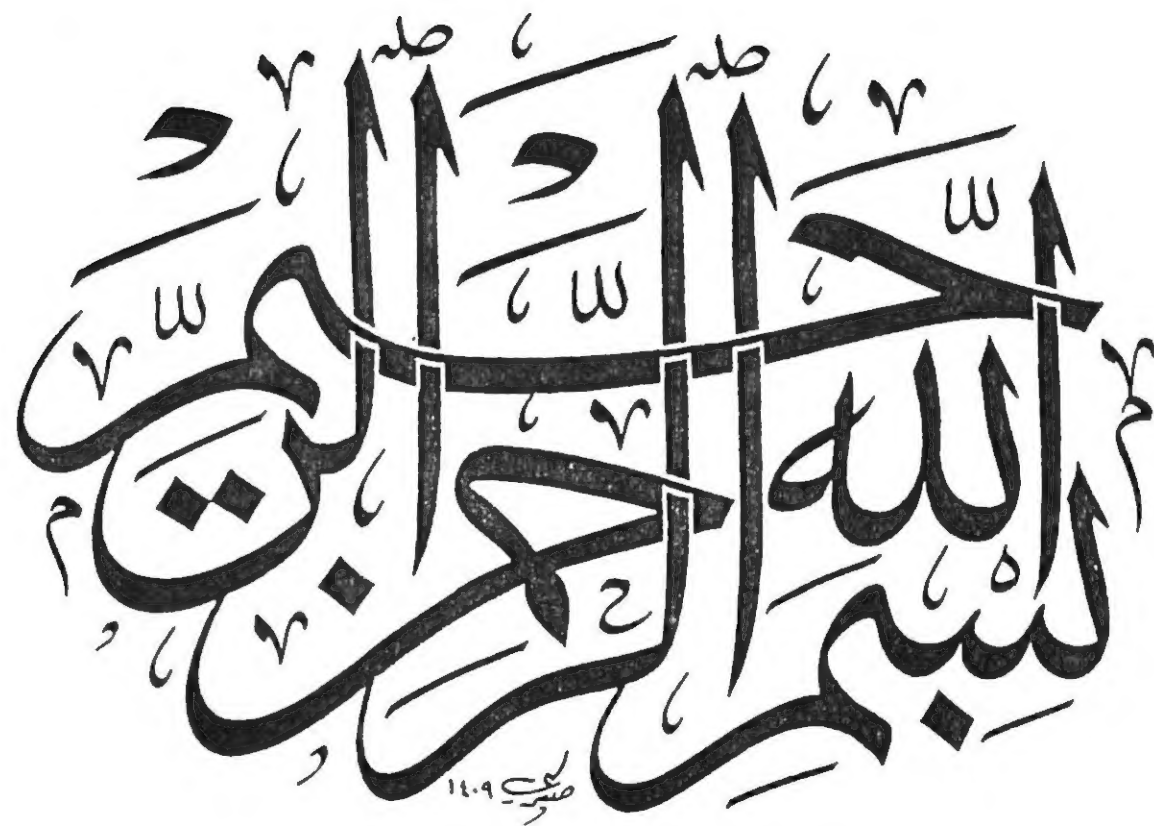 بِسْمِ اللهِ الرَّحْمٰنِ الرَّحِيْمِ
صبري ١٤٠٩